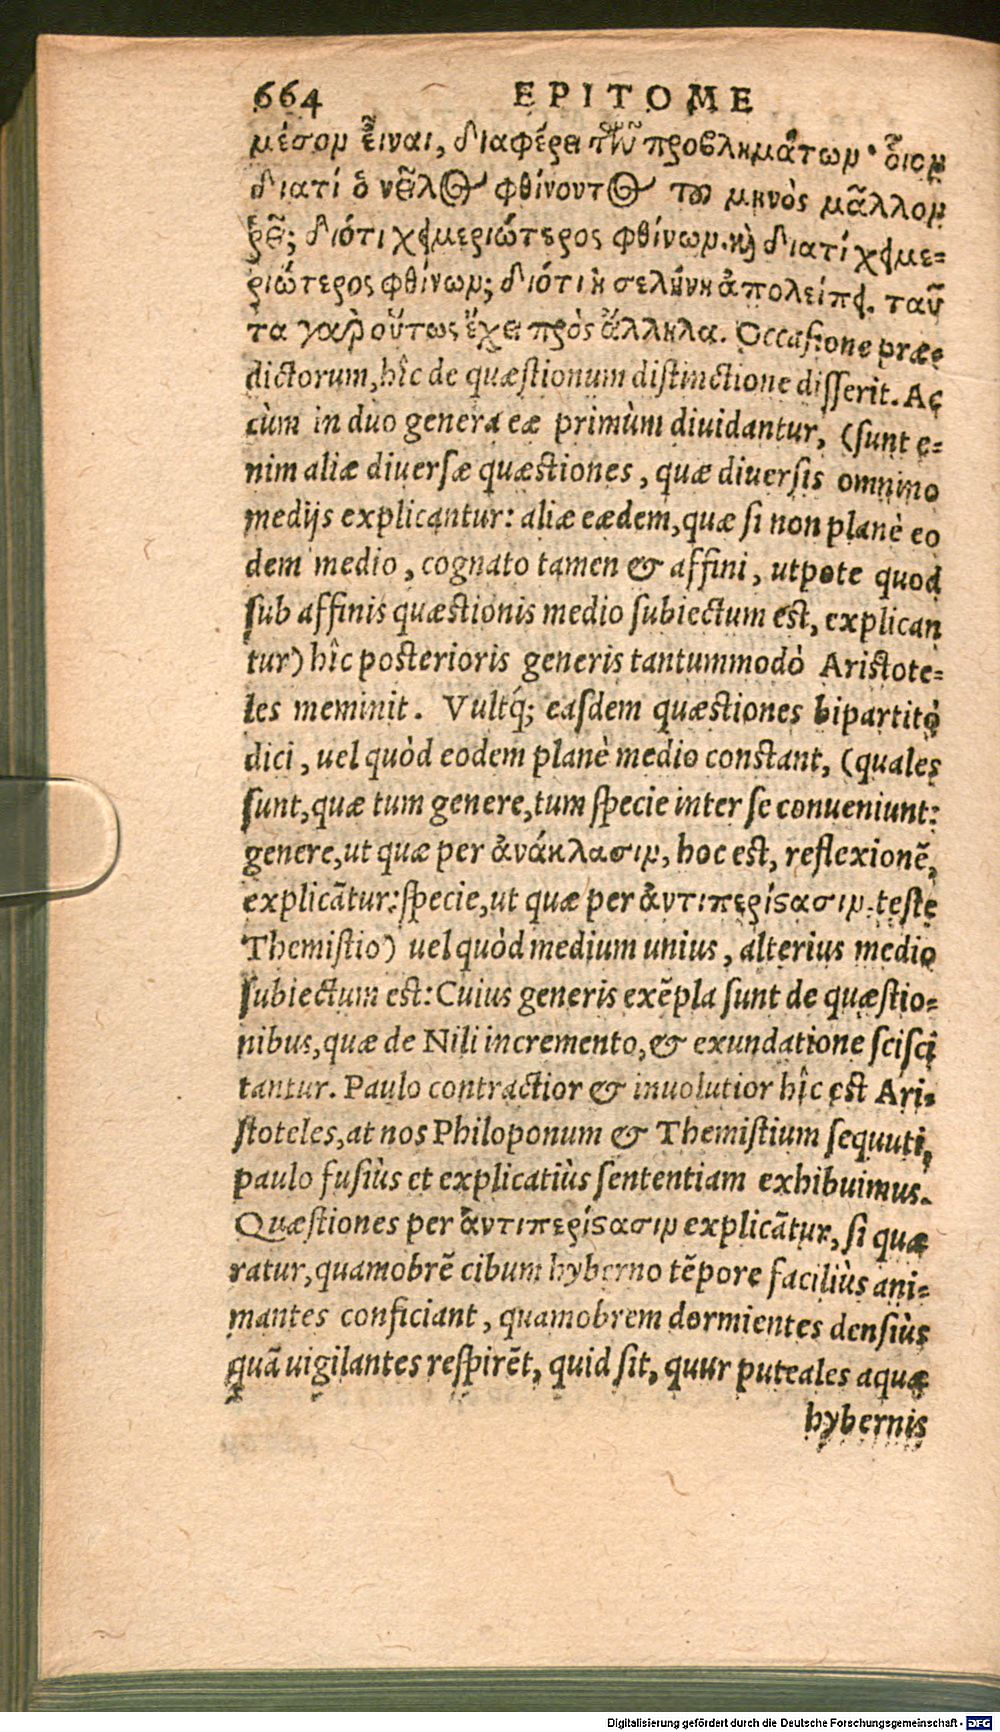 664 EPITOME
μέσον εἶναι, διαφέρει τῶν προβλημάτων· οἷον
διατί ὁ νεῖλος φθίνοντος τοῦ μηνὸς μᾶλλον
ῥεῖ; διότι χειμεριώτερος φθίνων. καὶ διατί χειμε=
ριώτερος φθίνων; διότι ἡ σελήνη ἀπολείπει. ταῦ
τα γὰρ οὕτως ἔχει πρὸς ἄλληλα. Occasione præe
dictorum, hîc de quæstionum distinctione disserit. Ac
cùm in duo genera eæ primùm diuidantur, (sunt e=
nim aliæ diuersæ quæstiones, quæ diuersis omnino
medijs explicantur: aliæ eædem, quæ si non planè eo
dem medio, cognato tamen & affini, utpote quod
sub affinis quæstionis medio subiectum est, explican
tur) hîc posterioris generis tantummodò Aristote=
les meminit. Vultq́; easdem quæstiones bipartitò
dici, uel quòd eodem planè medio constant, (quales
sunt, quæ tum genere, tum specie inter se conueniunt:
genere, ut quæ per ἀνάκλασιν, hoc est, reflexionẽ,
explicãtur: specie, ut quæ per ἀντιπερίϛασιν. teste
Themistio) uel quòd medium unius, alterius medio
subiectum est: Cuius generis exẽpla sunt de quæstio=
nibus, quæ de Nili incremento, & exundatione scisci
tantur. Paulo contractior & inuolutior hîc est Ari=
stoteles, at nos Philoponum & Themistium sequuti,
paulo fusiùs et explicatiùs sententiam exhibuimus.
Quæstiones per ἀντιπερίϛασιν explicãtur, si quæ
ratur, quamobrẽ cibum hyberno tẽpore faciliùs ani=
mantes conficiant, quamobrem dormientes densiùs
quã uigilantes respirẽt, quid sit, quur puteales aquæ
hybernis
Digitalisierung gefördert durch die Deutsche Forschungsgemeinschaft - DFG